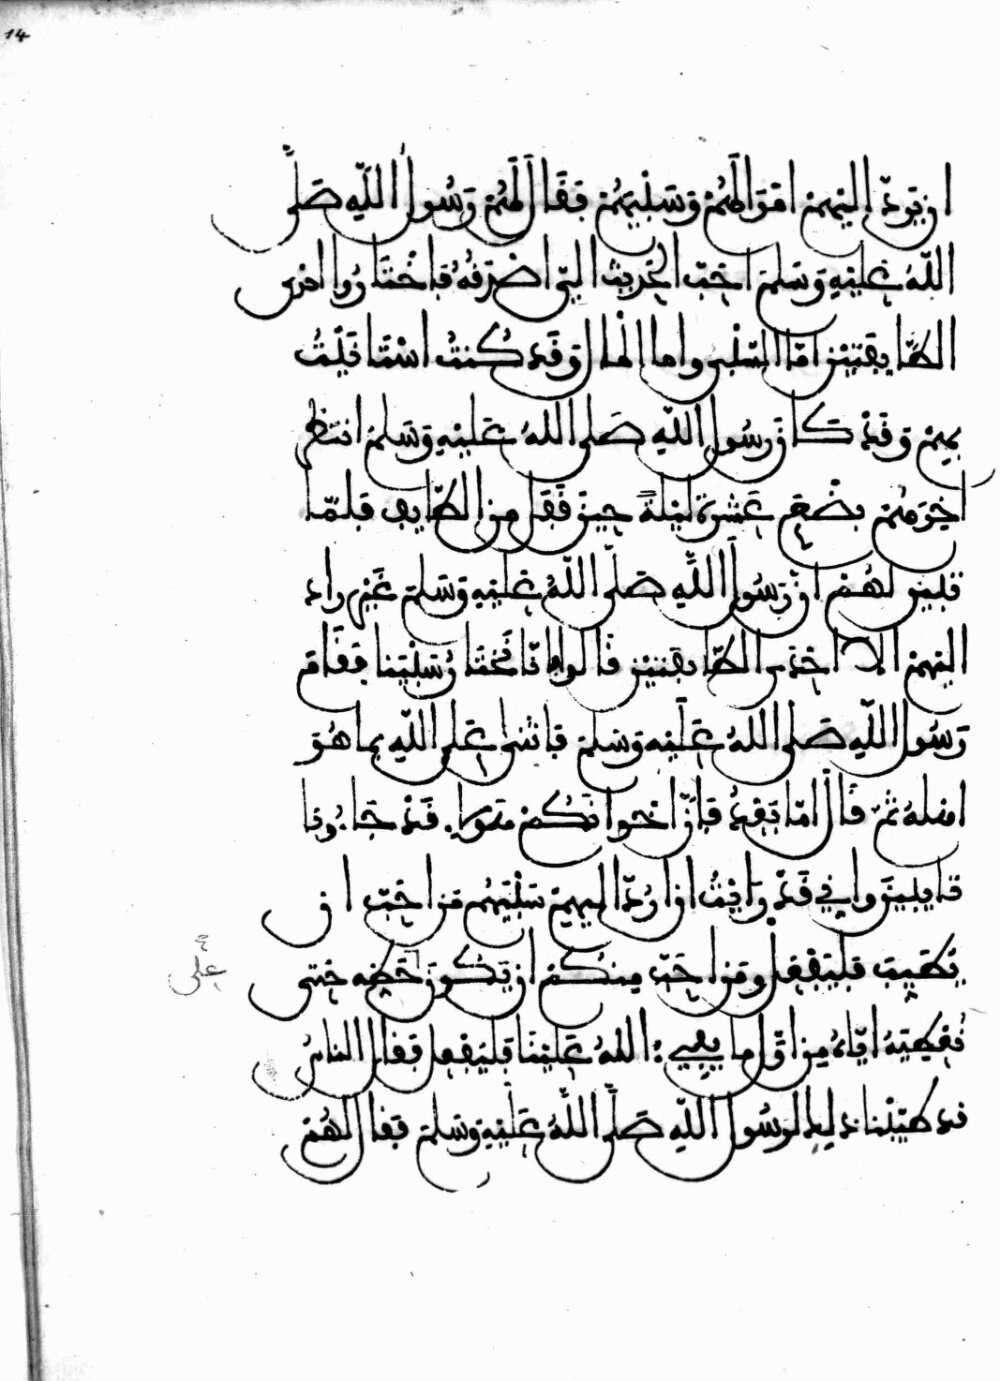 14
ان يرد اليهم اموالهم وسبيهم فقال لهم رسول الله صلى
الله عليه وسلم احب الحديث الي اصدقه فاختاروا احدى
الطايفتين اما السبي واما المال وقد كنت استانيت
بهم وقد كان رسول الله صلى الله عليه وسلم انتظر
اخرهم بضع عشرة ليلة حين قفل من الطايف فلما
تبين لهم ان رسول الله صلى الله عليه وسلم غير راد
اليهم الا احدى الطايفتين قالوا انا نختار سبينا فقام
رسول الله صلى الله عليه وسلم فاثنى على الله بما هو
اهله ثم قال اما بعد فان اخوانكم هولا قد جاءونا
تايبين واني قد رايت ان ارد اليهم سبيهم من احب ان
يطيب فليفعل ومن احب منكم ان يكون على حظه حتى
نعطيه اياه من اول ما يفيء الله علينا فليفعل فقال الناس
قد طيبنا ذلك لرسول الله صلى الله عليه وسلم فقال لهم
على